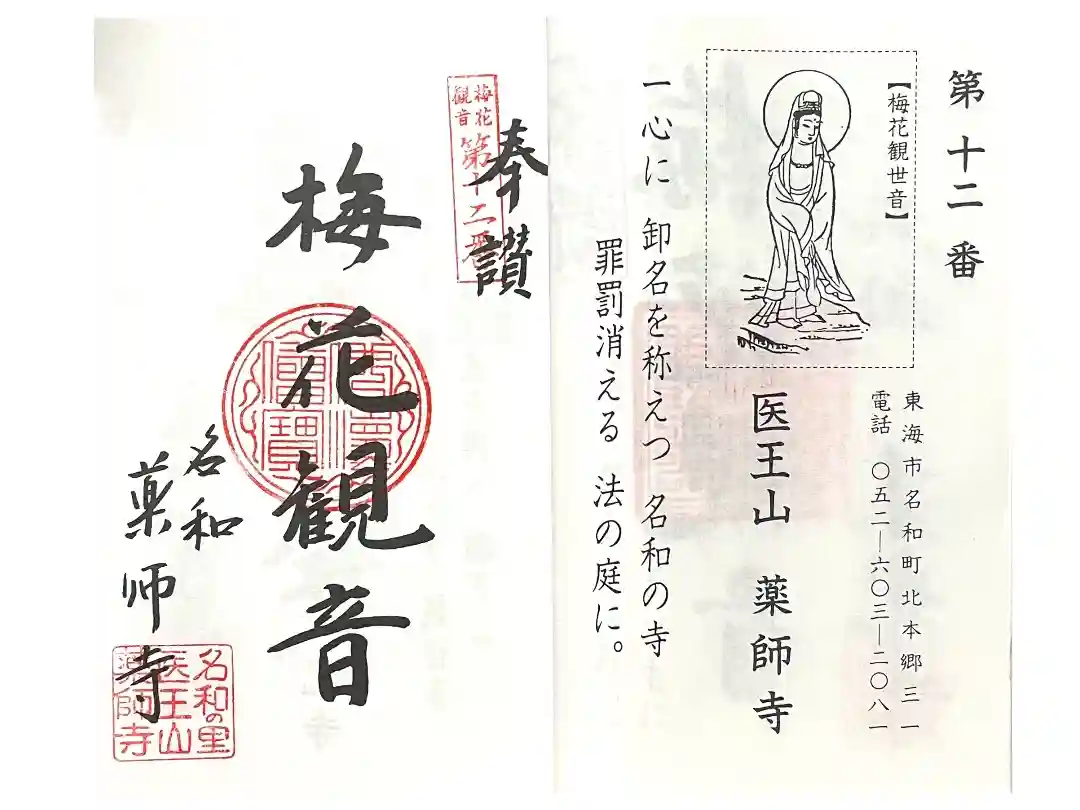 第十二番
【梅花観世音】
東海市名和町北本郷三一一
電話 〇五二―六〇三―二〇八一
医王山 薬師寺
一心に 卸名を称えつゝ 名和の寺
罪罰消える 法の庭に。
奉讃
梅花観音
第十二番
梅花観音
名和
薬師寺
名和の里
医王山
薬師寺